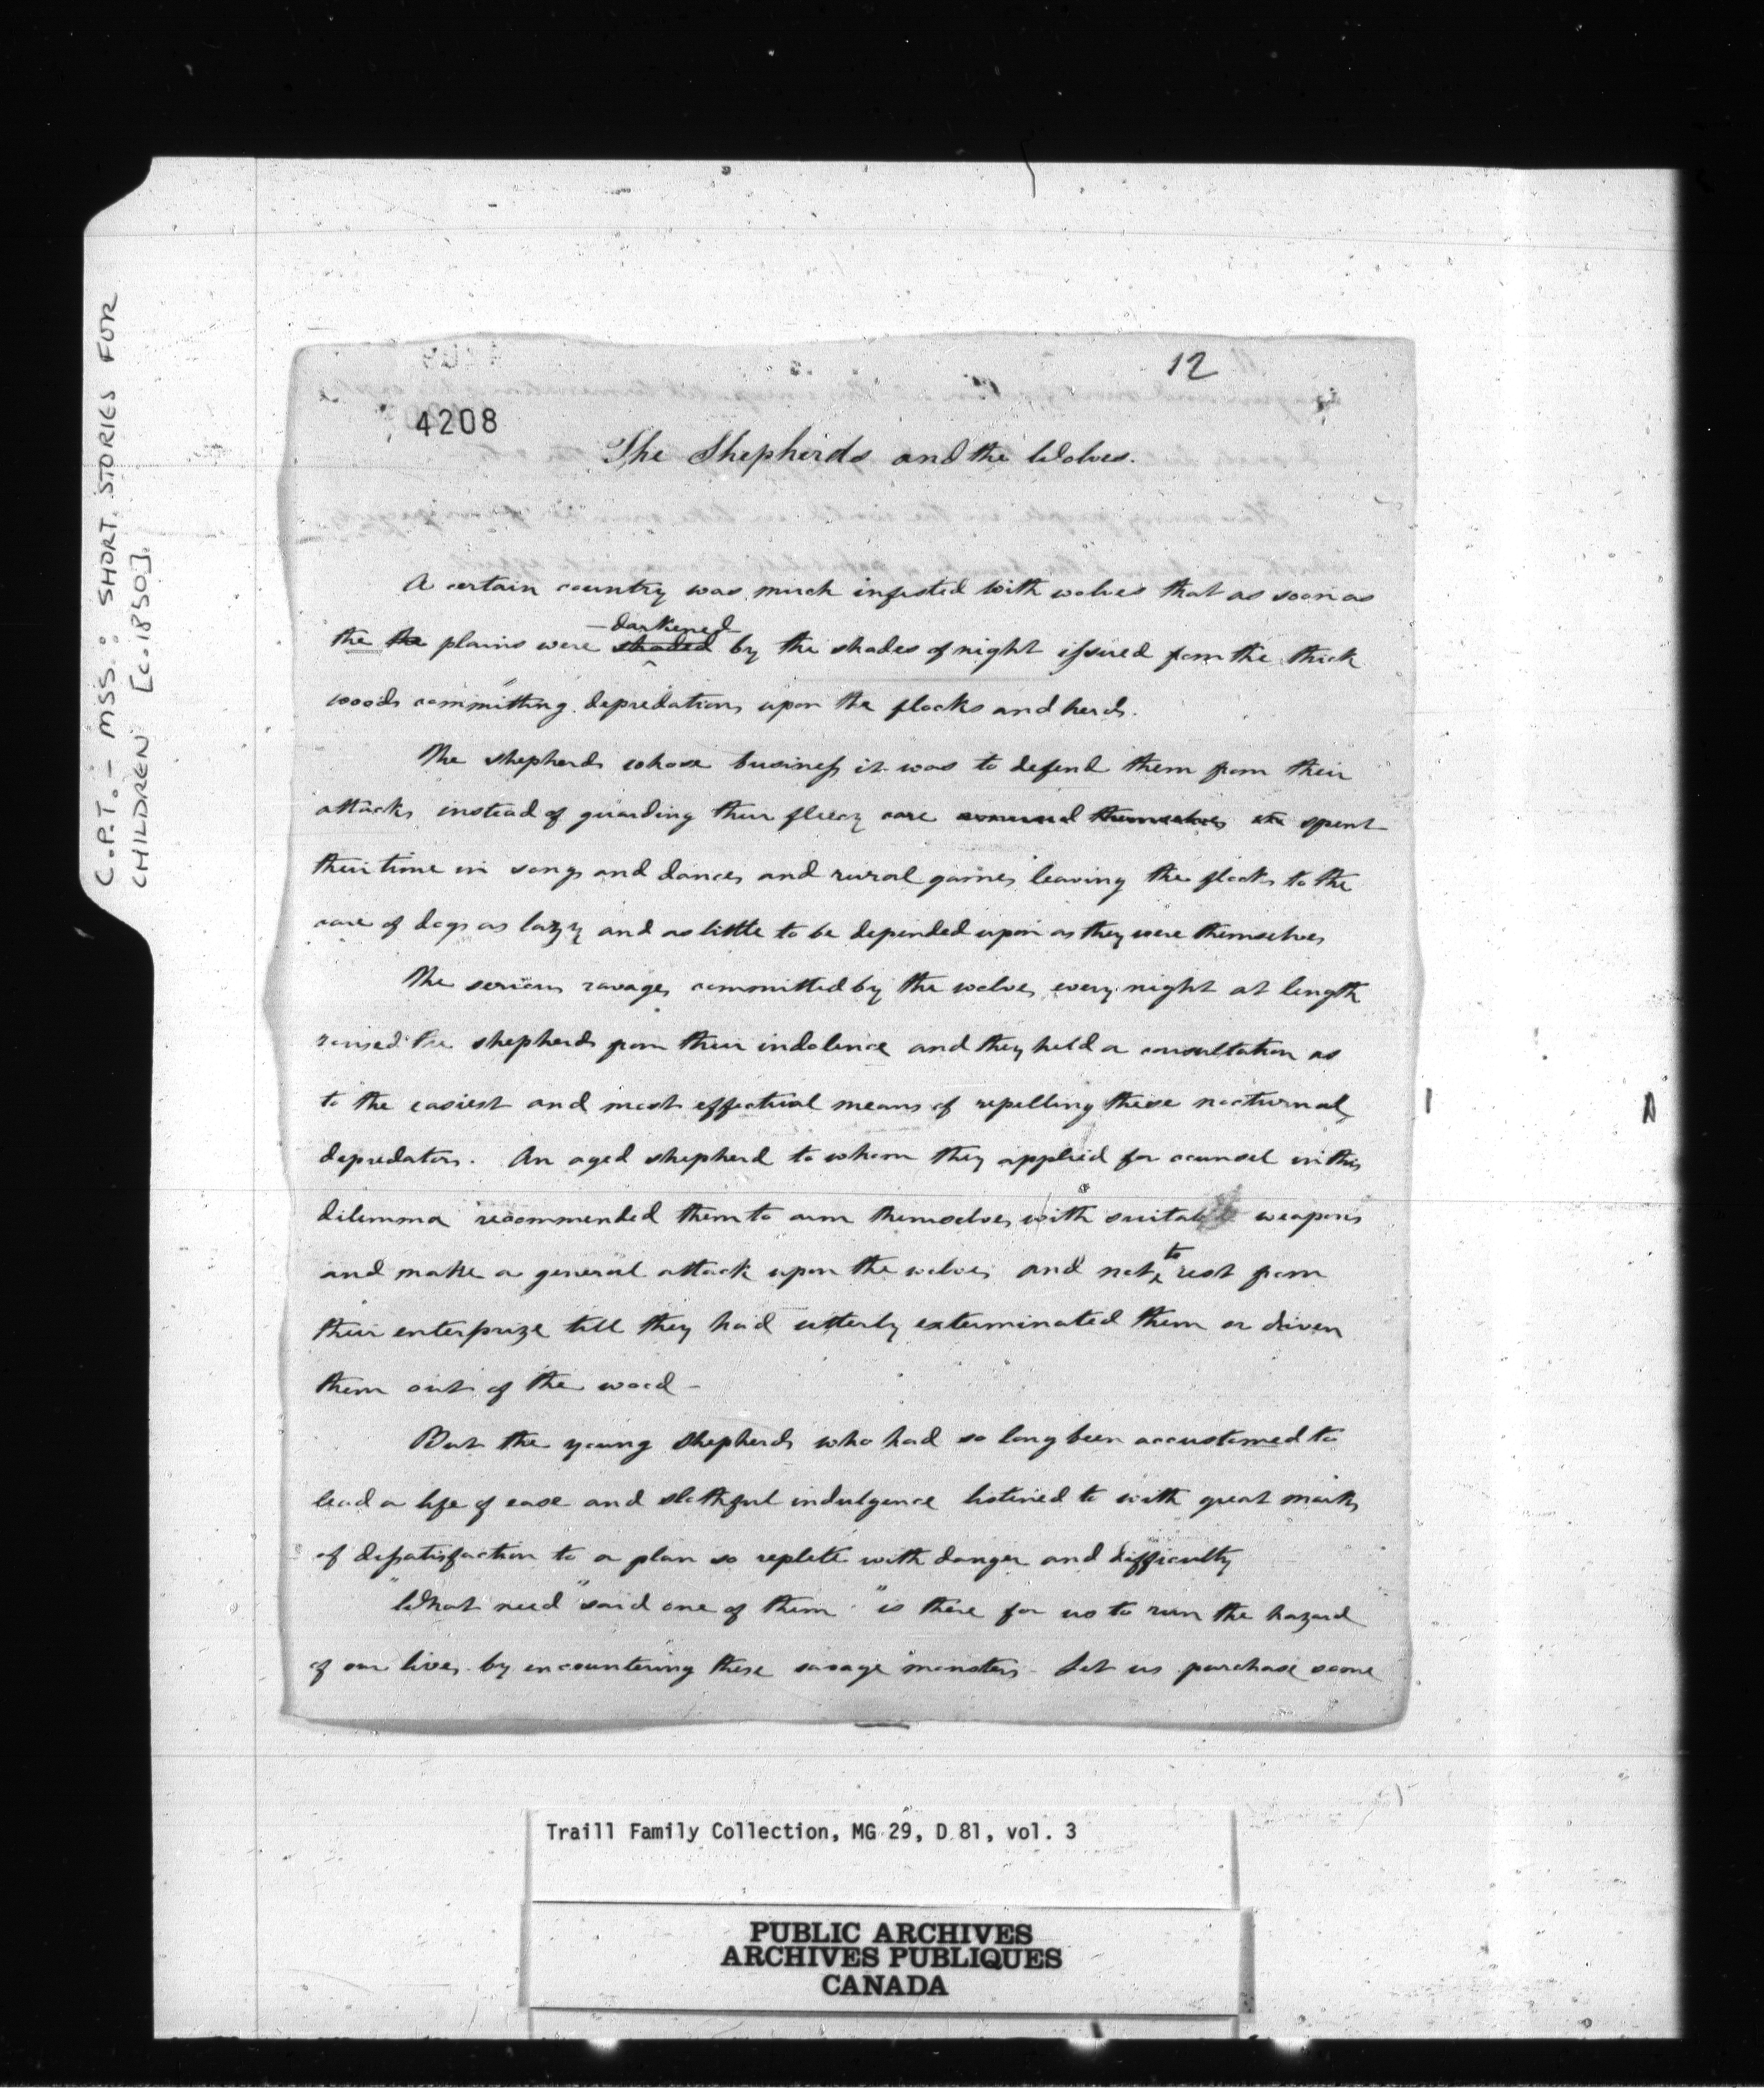 C.P.T. - MSS.: SHORT STORIES FOR
CHILDREN [c.1850].
12
4208
The Shepherds and the Wolves.
A certain country was much infested with wolves that as soon as
the the plains were shaded darkened by the shades of night issued from the thick
woods committing depredations upon the flocks and herds.
The shepherds whose business it was to defend them from their
attacks instead of guarding their fleecy care amused themselves spent
their time in songs and dances and rural games leaving the flocks to the
care of dogs as lazy and as little to be depended upon as they were themselves
The serious ravages committed by the wolves every night at length
roused the shepherds from their indolence and they held a consultation as
to the easiest and most effectual means of repelling these nocturnal
depredators. An aged shepherd to whom they applied for counsel in this
dilemma recommended them to arm themselves with suitable weapons
and make a general attack upon the wolves and not to rest from
their enterprize till they had utterly exterminated them or driven
them out of the wood -
But the young shepherds who had so long been accustomed to
lead a life of ease and slothful indulgence listened to with great marks
of dissatisfaction to a plan so replete with danger and difficulty
"What need" said one of them "is there for us to run the hazard
of our lives by encountering these savage monsters - Let us purchase some
Traill Family Collection, MG 29, D 81, vol. 3
PUBLIC ARCHIVES
ARCHIVES PUBLIQUES
CANADA